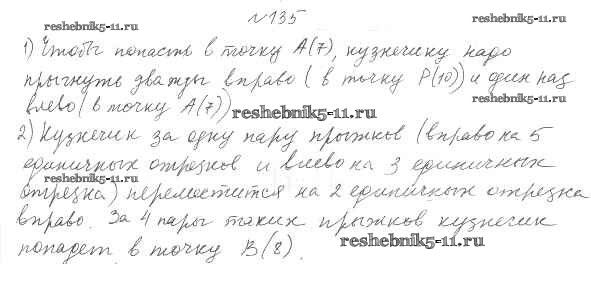 №135
reshebnik5-11.ru
1) Чтобы попасть в точку А(7), кузнечику надо
reshebnik5-11.ru
прыгнуть дважды вправо (в точку Р(10)) и один раз
reshebnik5-11.ru
влево (в точку А(7))
reshebnik5-11.ru
2) Кузнечик за одну пару прыжков (вправо на 5
единичных отрезков и влево на 3 единичных
reshebnik5-11.ru
отрезка) переместится на 2 единичных отрезка
вправо. За 4 пары таких прыжков кузнечик
reshebnik5-11.ru
попадет в точку В(8).
reshebnik5-11.ru